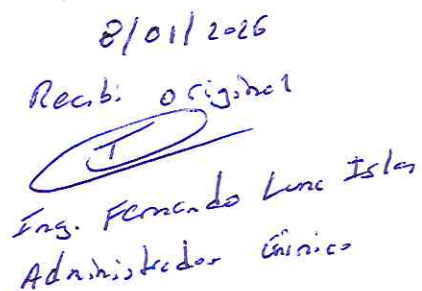 8/01/2026
Recibi original
Ing. Fernando Luna Islas
Administrador Único